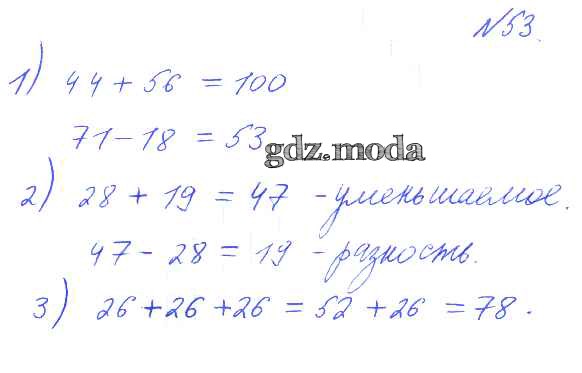 №53.
1) 44 + 56 = 100
71 - 18 = 53
gdz.moda
2) 28 + 19 = 47 - уменьшаемое.
47 - 28 = 19 - разность.
3) 26 + 26 + 26 = 52 + 26 = 78.